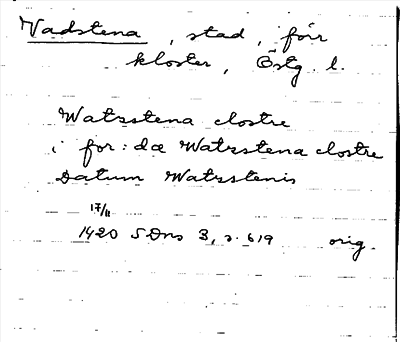 Vadstena, stad, förr
kloster, Östg. l.
Watzstena clostre
i for: da Watzstena clostre
Datum Watzstenis
17/11
1420 SDns 3, s. 619 orig.